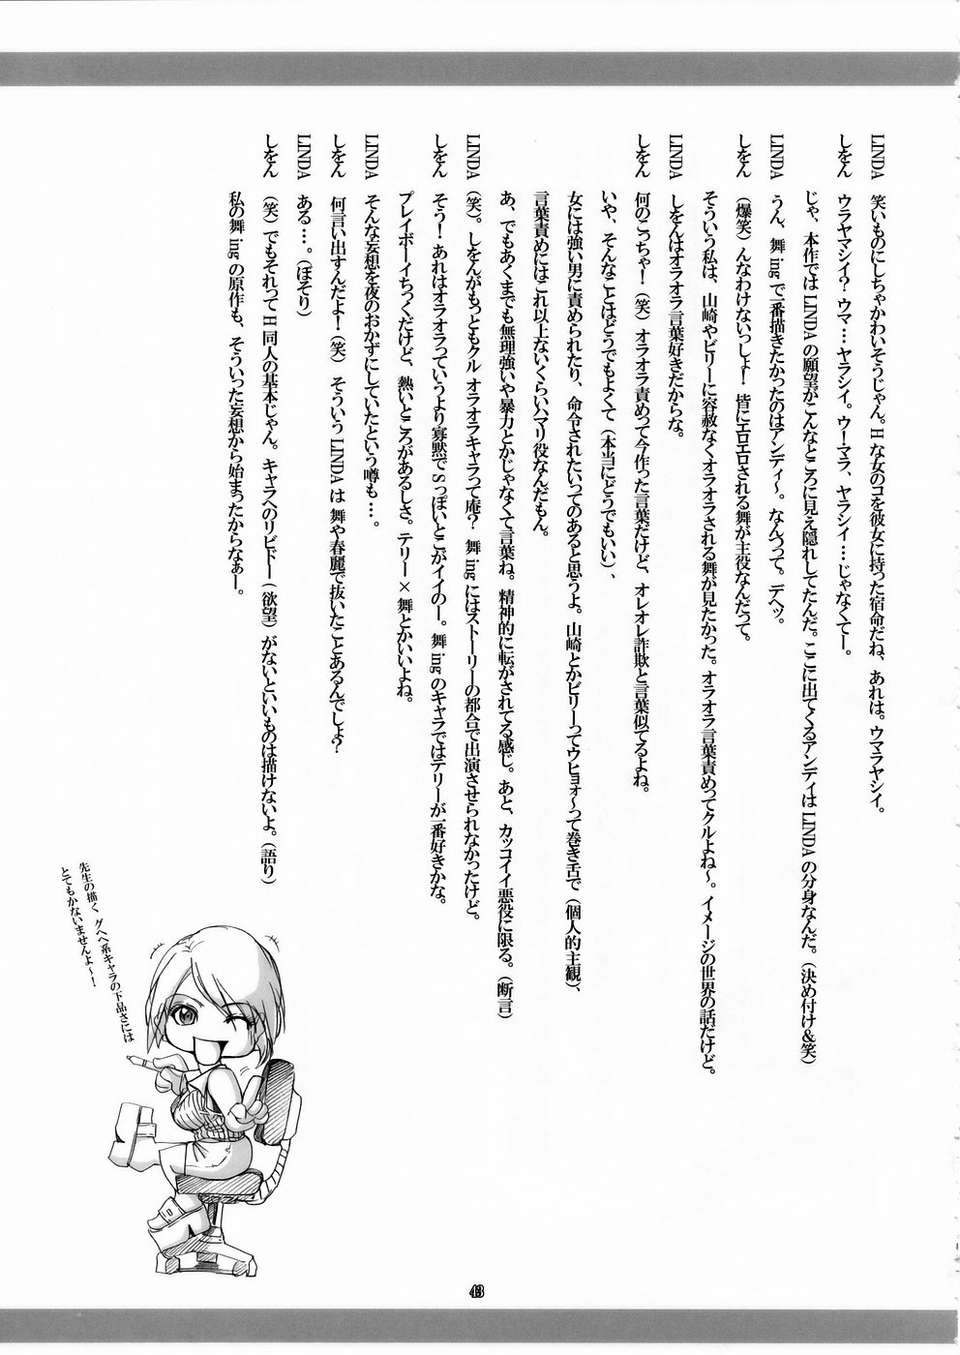 LINDA 笑いものにしちゃかわいそうじゃん。Hな女のコを彼女に持った宿命だね、あれは。ウマラヤシイ。
しをん ウラヤマシイ？ ウマ…ヤラシイ。ウ！マラ、ヤラシイ…じゃなくてー。
じゃ、本作ではLINDAの願望がこんなところに見え隠れしてたんだ。ここに出てくるアンディはLINDAの分身なんだ。（決め付け&笑）
LINDA うん、舞ingで一番描きたかったのはアンディ～。なんつって。デヘッ。
しをん （爆笑）んなわけないっしょ！ 皆にエロエロされる舞が主役なんだって。
そういう私は、山崎やビリーに容赦なくオラオラされる舞が見たかった。オラオラ言葉責めってクルよね～。イメージの世界の話だけど。
LINDA しをんはオラオラ言葉好きだからな。
しをん 何のこっちゃ！（笑）オラオラ責めって今作った言葉だけど、オレオレ詐欺と言葉似てるよね。
いや、そんなことはどうでもよくて（本当にどうでもいい）、
女には強い男に責められたり、命令されたいってのあると思うよ。山崎とかビリーってウヒョォ～って巻き舌で（個人的主観）、
言葉責めにはこれ以上ないくらいハマリ役なんだもん。
あ、でもあくまでも無理強いや暴力とかじゃなくて言葉ね。精神的に転がされてる感じ。あと、カッコイイ悪役に限る。（断言）
LINDA （笑）。しをんがもっともクルオラオラキャラって庵？ 舞ingにはストーリーの都合で出演させられなかったけど。
しをん そう！あれはオラオラっていうより寡黙でSっぽいとこがイイのー。舞ingのキャラではテリーが一番好きかな。
プレイボーイちっくだけど、熱いところがあるしさ。テリー×舞とかいいよね。
LINDA そんな妄想を夜のおかずにしていたという噂も…。
しをん 何言い出すんだよ！（笑） そういうLINDAは舞や春麗で抜いたことあるんでしょ？
LINDA ある…。（ぼそり）
しをん （笑）でもそれってH同人の基本じゃん。キャラへのリビドー（欲望）がないといいものは描けないよ。（語り）
私の舞ingの原作も、そういった妄想から始まったからなぁー。
先生の描く、グヘヘ系キャラの下品さには
とてもかないませんよ～！
43